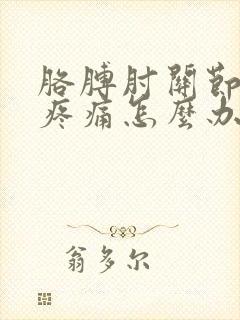 胳膊肘關節
疼痛怎麼办
翁多尔